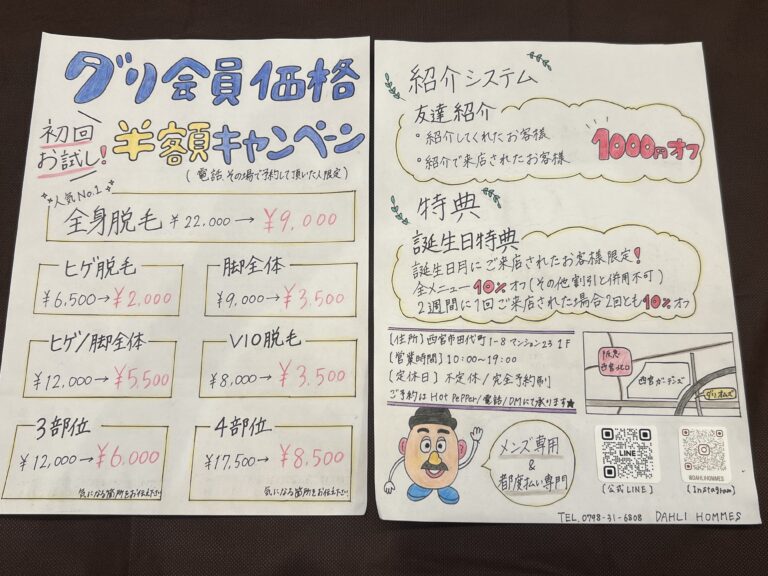 ダリ会員価格
初回
お試し!
半額キャンペーン
(電話、その場で予約して頂いた人限定)
人気No.1
全身脱毛 ¥22,000→¥9,000
ヒゲ脱毛
¥6,500→¥2,000
脚全体
¥9,000→¥3,500
ヒゲ/脚全体
¥12,000→¥5,500
VIO脱毛
¥8,000→¥3,500
3部位
¥12,000→¥6,000
気になる箇所をお伝え下さい
4部位
¥17,500→¥8,500
気になる箇所をお伝え下さい
紹介システム
友達紹介
・紹介してくれたお客様
・紹介で来店されたお客様
1000円オフ
特典
誕生日特典
誕生日月にご来店されたお客様限定!
全メニュー10%オフ(その他割引と併用不可)
2週間に1回ご来店された場合2回とも10%オフ
[住所]西宮市田代町1-8マンション23 1F
[営業時間]10:00〜19:00
[定休日]不定休/完全予約制
ご予約はHot Pepper/電話/DMにて承ります★
阪急
西宮北口
西宮ガーデンズ
ダリオムズ
メンズ専用
&
都度払い専門
LINE
(公式LINE)
@DAHLIHOMMES
(Instagram)
TEL.0798-31-6808 DAHLI HOMMES